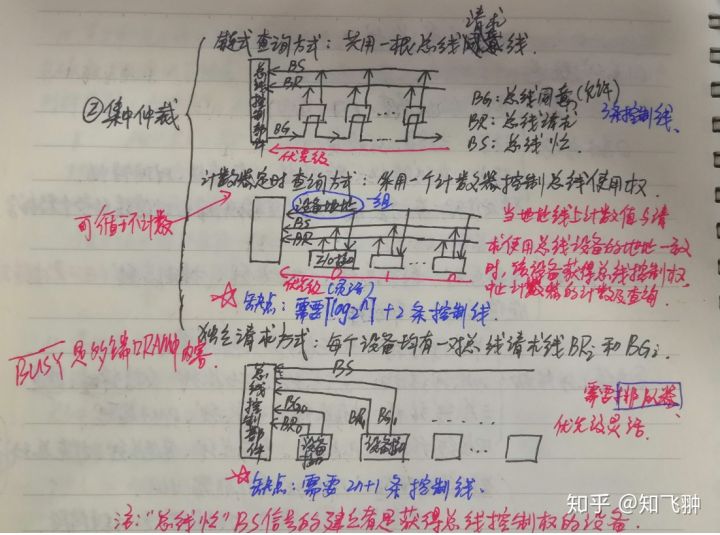 请求
链式查询方式：共用一根总线线.
②集中仲裁
总线控制部件
BS
BR
BG
BG：总线同意(允许)
BR：总线请求
BS：总线忙
3条控制线.
优先级
计数器定时查询方式：采用一个计数器控制总线使用权.
可循环计数
设备地址
一组
BS
BR
I/O接口
0
1
n
优先级(灵活)
当地址线上计数值与请
求使用总线设备的地址一致
时，该设备获得总线控制权
中止计数器的计数及查询.
☆缺点：需要⌈log2ⁿ⌉+2条控制线.
独立请求方式：每个设备均有一对总线请求线BRi和BGi.
BUSY 是的端口RAM内容.
总线控制部件
BS
BG0
BR0
BR1
BG1
设备
设备接口
需要排队器
优先级灵活.
☆缺点：需要2n+1条控制线.
注："总线忙"BS信号的建立者是获得总线控制权的设备.
知乎 @知飞翀